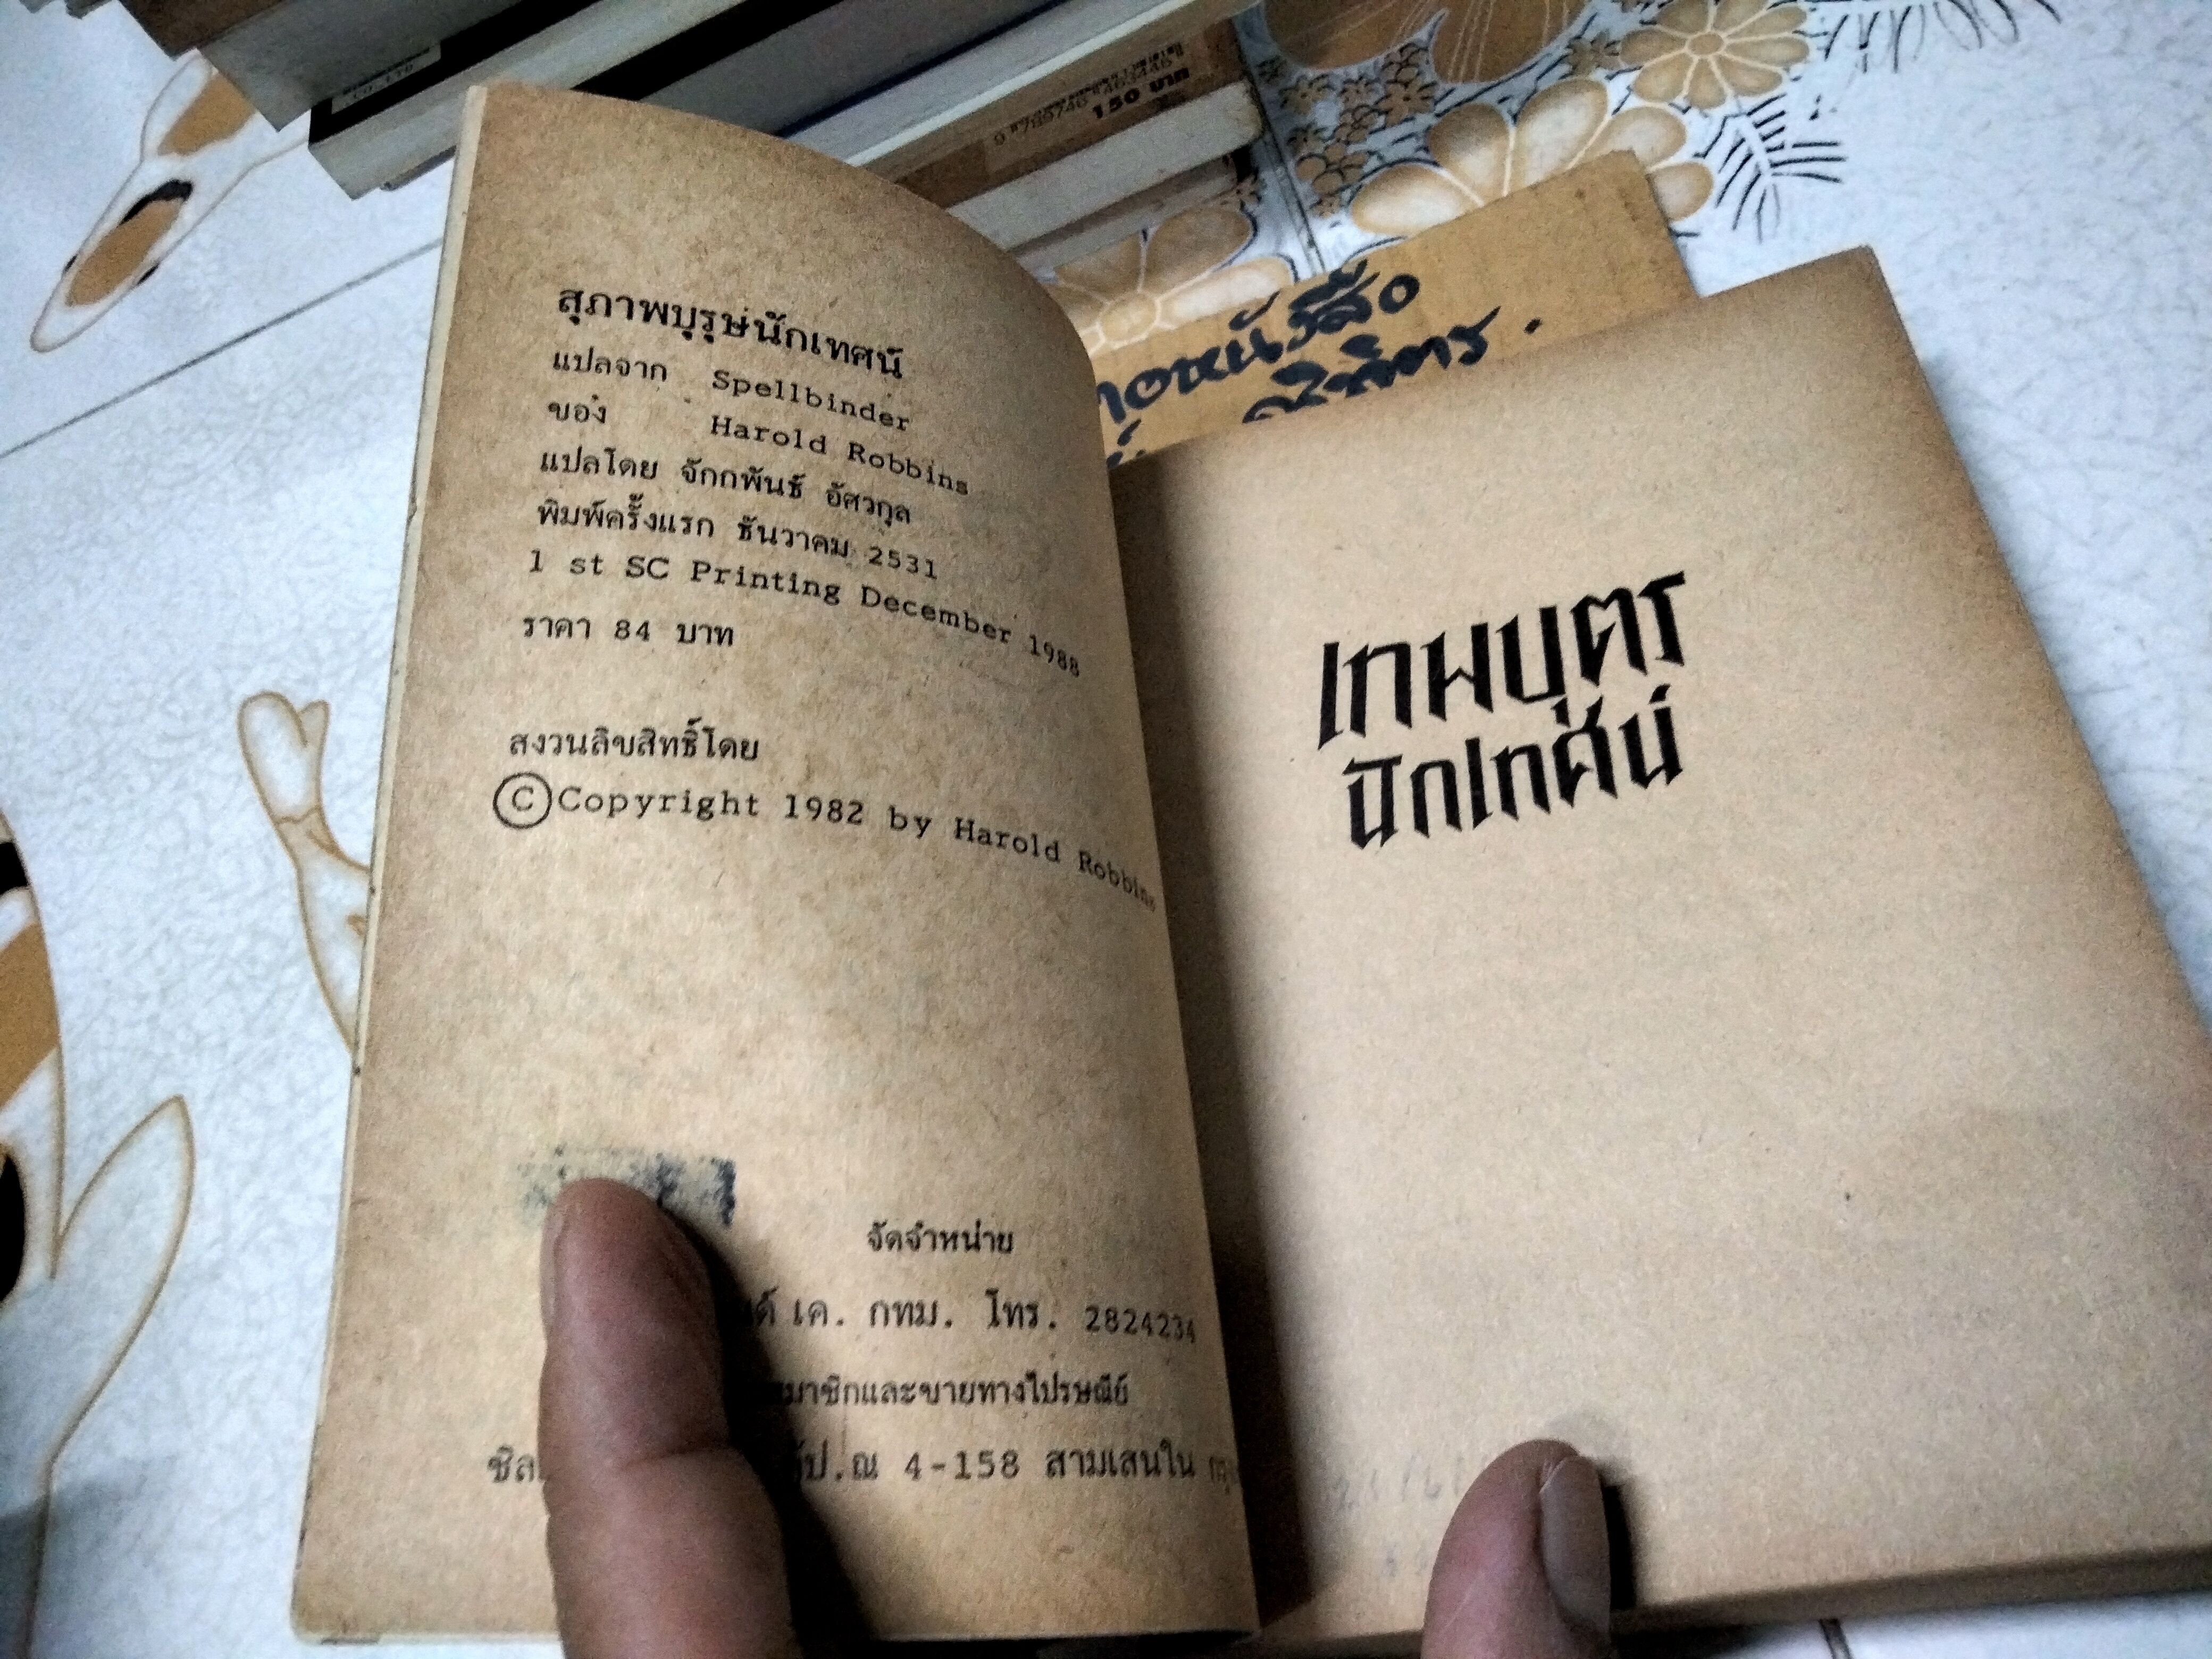 สุภาพบุรุษนักเทศน์
แปลจาก Spellbinder
ของ Harold Robbins
แปลโดย จักกพันธ์ อัศวกุล
พิมพ์ครั้งแรก ธันวาคม 2531
1 st SC Printing December 1988
ราคา 84 บาท
สงวนลิขสิทธิ์โดย
©Copyright 1982 by Harold Robbins
จัดจำหน่าย
เค. กทม. โทร. 2824234
สมาชิกและขายทางไปรษณีย์
ตู้ป.ณ 4-158 สามเสนใน
เทพบุตร
นักเทศน์
150 บาท